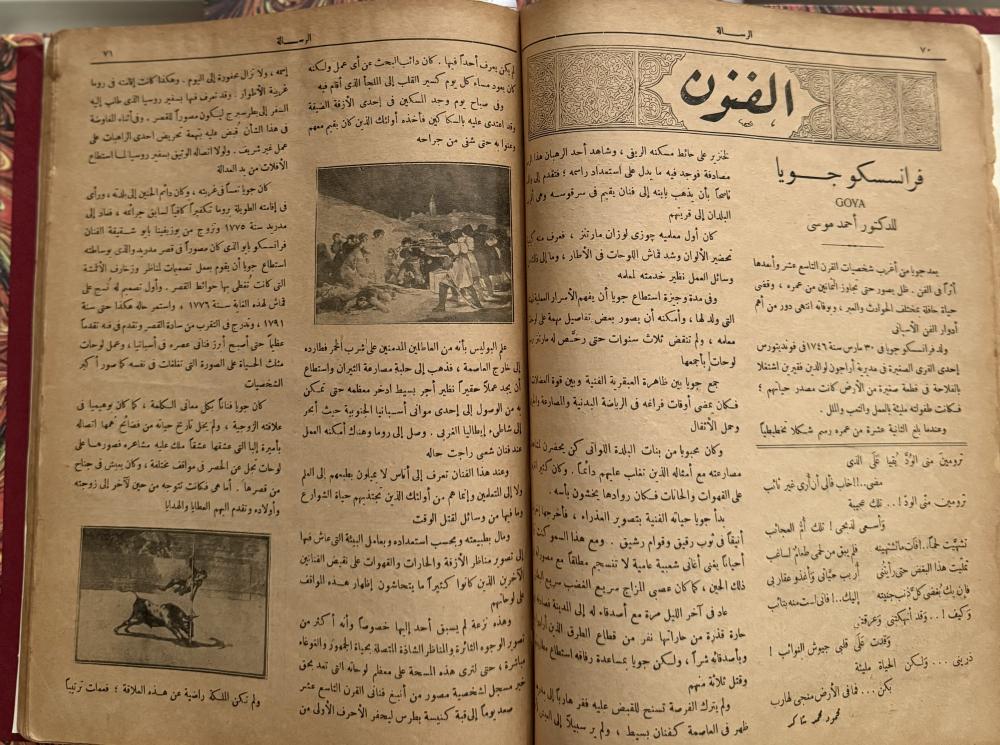 الرسالة
٧٠
الفنون
فرانسسكو جويا
GOYA
للدكتور أحمد موسى
يعد جويا من أغرب شخصيات القرن التاسع عشر وأبعدها
أثراً في الفن. ظل يصور حتى تجاوز الثمانين من عمره، وقضى
حياة حافلة بمختلف الحوادث والعبر، وبوفاته انتهى دور من أهم
أدوار الفن الأسباني
ولد فرانسسكو جويا في ٣٠ مارس سنة ١٧٤٦ في فوندیتورس
إحدى القرى الصغيرة في مديرية أراجون لوالدين فقيرين اشتغلا
بالفلاحة في قطعة صغيرة من الأرض كانت مصدر حياتهم؛
فكانت طفولته مليئة بالعمل والتعب والملل.
وعندما بلغ الثانية عشرة من عمره رسم شكلا تخطيطياً
ترومين منى الودَّ يقيا عَلَى الذى
مضى..! خاب فألى أن أرى غير تائب
ترومين منى الودّ !.. تلك عجيبة
وَأسمى لذبحى ! تلك أُمُّ العجائب
تشهيتِ لحماً..! فات ما تشتهينه فلم يبق من لحمى طعامٌ لساغب
تمليت هذا البغض حتى رأيتُنى أريب حياتى وأغذو عقاربى
فإن يك بُغضى كلّ ذنب جنيته إليك..! فإنى لست منه بتائب
وَكيف !.. وَقد أنهكتنى وَعرقتنى
وَقدت عَلَى قلبى جيوش النوائب !
ذرينى ... وَلكن الحياة مليئة
بكن ... فما فى الأرض منجى لهارب
محمود محمد شاكر
لخنزير على حائط مسكنه الريفى، وشاهد أحد الرهبان هذا
مصادفة فوجد فيه ما يدل على استعداد راسمه؛ فتقدم إلى
ناصحاً بأن يذهب بابنه إلى فنان يقيم في سرقوسه وهى
البلدان إلى قريتهم
كان أول معلميه چوزى لوزان مارتنز، فعرف منه
تحضير الألوان وشد قماش اللوحات في الأطار، وما إلى ذلك
وسائل العمل نظير خدمته لمعلمه
وفى مدة وجيزة استطاع جويا أن يفهم الأسرار العملية
التى ولد لها، وأمكنه أن يصور بعض تفاصيل مهمة على
معلمه، ولم تنقض ثلاث سنوات حتى رخَّص له مارتنز
لوحات بأجمعها
جمع جويا بين ظاهرة العبقرية الفنية وبين قوة العضلات
فكان يمضى أوقات فراغه في الرياضة البدنية والمصارعة
وحمل الأثقال
وكان محبوبا من بنات البلدة اللواتى كن يحضرن
مصارعته مع أمثاله الذين تغلب عليهم دائماً. وكان كثير
على القهوات والحانات فكان روادها يخشون بأسه.
بدأ جويا حياته الفنية بتصوير العذراء، فأخرجها
أنيقاً في ثوب رقيق وقوام رشيق. ومع هذا السمو كنت
أحياناً يغنى أغانى شعبية عامية لا تنسجم مطلقاً مع مصور
ذلك الحين، كما كان عصبى المزاج سريع الغضب سريع
عاد في آخر الليل مرة مع أصدقاء له إلى المدينة
حارة قذرة من حاراتها نفر من قطاع الطرق الذين أرادوا
وبأصدقائه شراً، ولكن جويا بمساعدة رفاقه استطاع
وقتل ثلاثة منهم
ولم يترك الفرصة تسنح للقبض عليه ففر هارباً إلى
ظهر في العاصمة كفنان بسيط، ولم ير سبيلاً إلى
الرسالة
٧١
لم يكن يعرف أحداً فيها. كان دائب البحث عن أى عمل ولكنه
كان يعود مساء كل يوم كسير القلب إلى الملجأ الذى أقام فيه
وفى صباح يوم وجد المسكين في إحدى الأزقة الضيقة
وقد اعتدى عليه بالسكاكين فأخذه أولئك الذين كان يقيم معهم
وعنوا به حتى شفى من جراحه
علم البوليس بأنه من العاطلين المدمنين على شرب الخمر فطارده
إلى خارج العاصمة، فذهب إلى حلبة مصارعة الثيران واستطاع
أن يجد عملاً حقيراً نظير أجر بسيط ادخر معظمه حتى تمكن
به من الوصول إلى إحدى موانى أسبانيا الجنوبية حيث أبحر
إلى شاطىء إيطاليا الغربى. وصل إلى روما وهناك أمكنه العمل
عند فنان شعبى راجت حاله
وعند هذا الفنان تعرف إلى أناس لا يميلون بطبعهم إلى العلم
ولا إلى المتعلمين وإنما هم من أولئك الذين تجتذبهم حياة الشوارع
وما فيها من وسائل لقتل الوقت
ومال بطبيعته وبحسب استعداده وبعامل البيئة التى عاش فيها
إلى تصوير مناظر الأزقة والحارات والقهوات على نقيض الفنانين
الآخرين الذين كانوا كثيرا ما يتحاشون إظهار هذه المواقف
على لوحاتهم
وهذه نزعة لم يسبق أحد إليها خصوصاً وأنه أكثر من
تصوير الوجوه الثائرة والمناظر الشاذة المتصلة بحياة الجمهور والغوغاء
مباشرة، حتى لنرى هذه المسحة على معظم لوحاته التى تعد بحق
خير مسجل لشخصية مصور من أنبغ فنانى القرن التاسع عشر
صعد يوماً إلى قبة كنيسة بطرس ليحفر الأحرف الأولى من
إسمه، ولا تزال محفورة إلى اليوم. وهكذا كانت إقامته في روما
غريبة الأطوار. وقد تعرف فيها بسفير روسيا الذى طلب إليه
السفر إلى بطرسبرج ليكون مصوراً للقصر. وفى أثناء المفاوضة
في هذا الشأن قبض عليه بتهمة تحريض إحدى الراهبات على
عمل غير شريف. ولولا اتصاله الوثيق بسفير روسيا لما استطاع
الأفلات من يد العدالة
كان جويا تعساً في غربته، وكان دائم الحنين إلى بلدته، ورأى
في إقامته الطويلة بروما تكفيراً كافياً لسابق جرائمه، فعاد إلى
مدريد سنة ١٧٧٥ وتزوج من يوزيفينا بايو شقيقة الفنان
فرانسسكو بايو الذى كان مصوراً في قصر مدريد والذى بوساطته
استطاع جويا أن يقوم بعمل تصميمات لمناظر وزخارف الأقمشة
التى كانت تغطى بها حوائط القصر. وأول تصميم له نسج على
قماش لهذه الغاية بسنة ١٧٧٦، واستمر حاله هكذا حتى سنة
١٧٩١، وتدرج في التقرب من سادة القصر وتقدم في فنه تقدماً
عظيما حتى أصبح أبرز فنانى عصره في أسبانيا، وعمل لوحات
مثلت الحياة على الصورة التى تغلغلت في نفسه كما صور أكبر
الشخصيات
كان جويا فناناً بكل معانى الكلمة، كما كان بوهيميا في
علاقته الزوجية، ولم يخل تاريخ حياته من فضائح عمها اتصاله
بأميرة إلبا التى عشقها عشقاً ملك عليه مشاعره فصورها على
لوحات تجل عن الحصر في مواقف مختلفة، وكان يعيش في جناح
من قصرها. أما هى فكانت تتوجه من حين لآخر إلى زوجته
وأولاده وتقدم اليهم العطايا والهدايا
ولم تكن الملكة راضية عن هذه العلاقة؛ فعملت ترتيباً